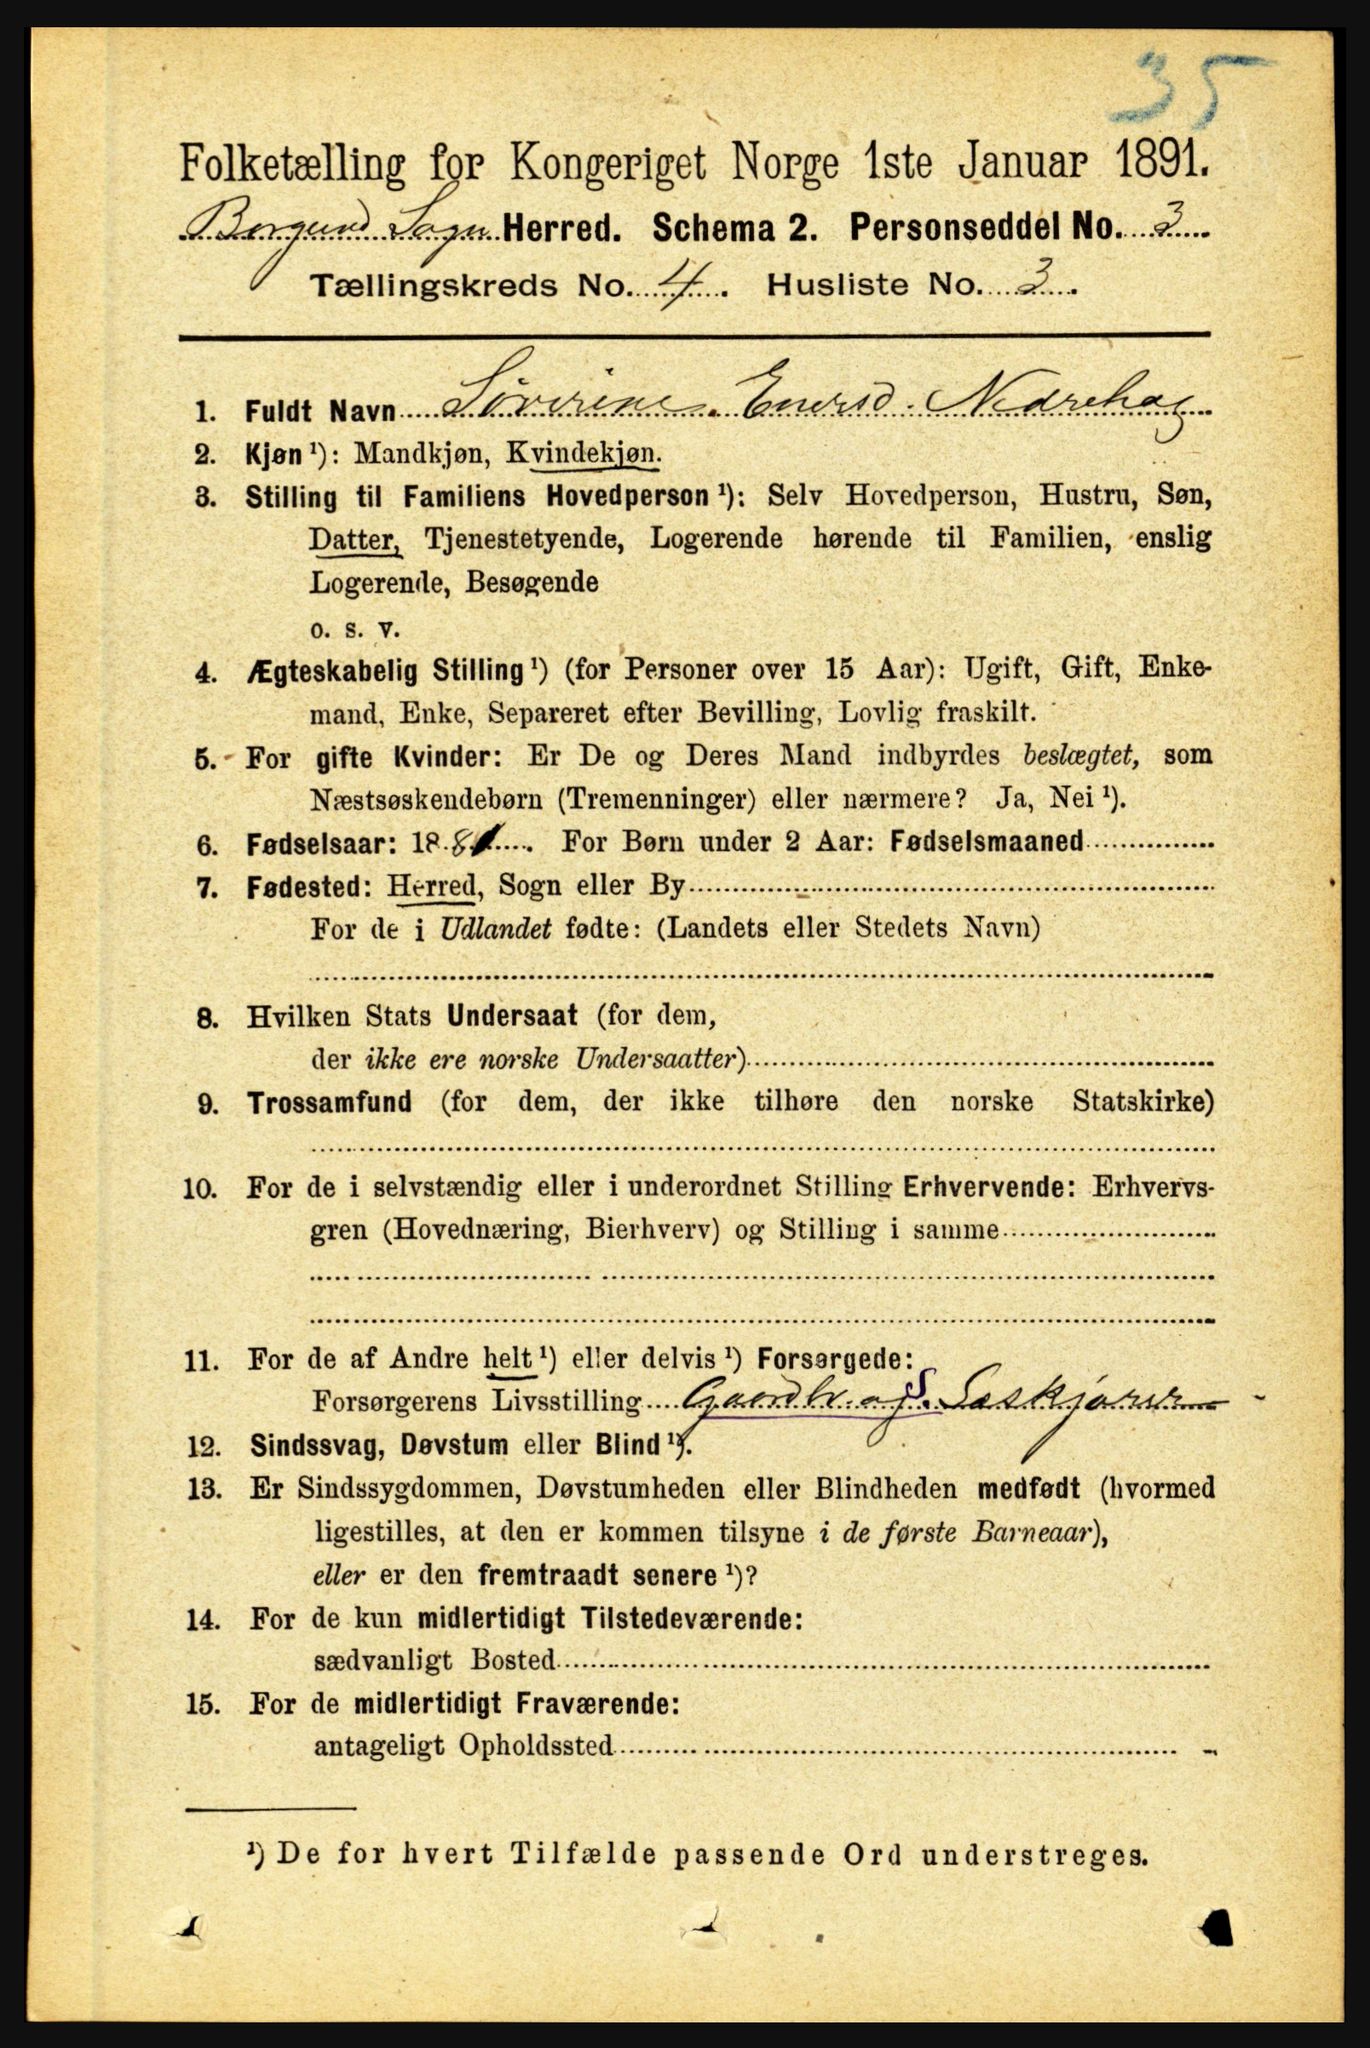 35
Folketælling for Kongeriget Norge 1ste Januar 1891.
Borgund Sogn Herred. Schema 2. Personseddel No. 3
Tællingskreds No. 4. Husliste No. 3.
1. Fuldt Navn Søverine Enersd. Nedrehag
2. Kjøn ¹): Mandkjøn, Kvindekjøn.
3. Stilling til Familiens Hovedperson ¹): Selv Hovedperson, Hustru, Søn,
Datter, Tjenestetyende, Logerende hørende til Familien, enslig
Logerende, Besøgende
o. s. v.
4. Ægteskabelig Stilling ¹) (for Personer over 15 Aar): Ugift, Gift, Enke-
mand, Enke, Separeret efter Bevilling, Lovlig fraskilt.
5. For gifte Kvinder: Er De og Deres Mand indbyrdes beslægtet, som
Næstsøskendebørn (Tremenninger) eller nærmere? Ja, Nei ¹).
6. Fødselsaar: 1881. For Børn under 2 Aar: Fødselsmaaned
7. Fødested: Herred, Sogn eller By
For de i Udlandet fødte: (Landets eller Stedets Navn)
8. Hvilken Stats Undersaat (for dem,
der ikke ere norske Undersaatter)
9. Trossamfund (for dem, der ikke tilhøre den norske Statskirke)
10. For de i selvstændig eller i underordnet Stilling Erhvervende: Erhvervs-
gren (Hovednæring, Bierhverv) og Stilling i samme
11. For de af Andre helt ¹) eller delvis ¹) Forsørgede:
Forsørgerens Livsstilling Gaardbr. og
12. Sindssvag, Døvstum eller Blind ¹).
13. Er Sindssygdommen, Døvstumheden eller Blindheden medfødt (hvormed
ligestilles, at den er kommen tilsyne i de første Barneaar),
eller er den fremtraadt senere ¹)?
14. For de kun midlertidigt Tilstedeværende:
sædvanligt Bosted
15. For de midlertidigt Fraværende:
antageligt Opholdssted
¹) De for hvert Tilfælde passende Ord understreges.